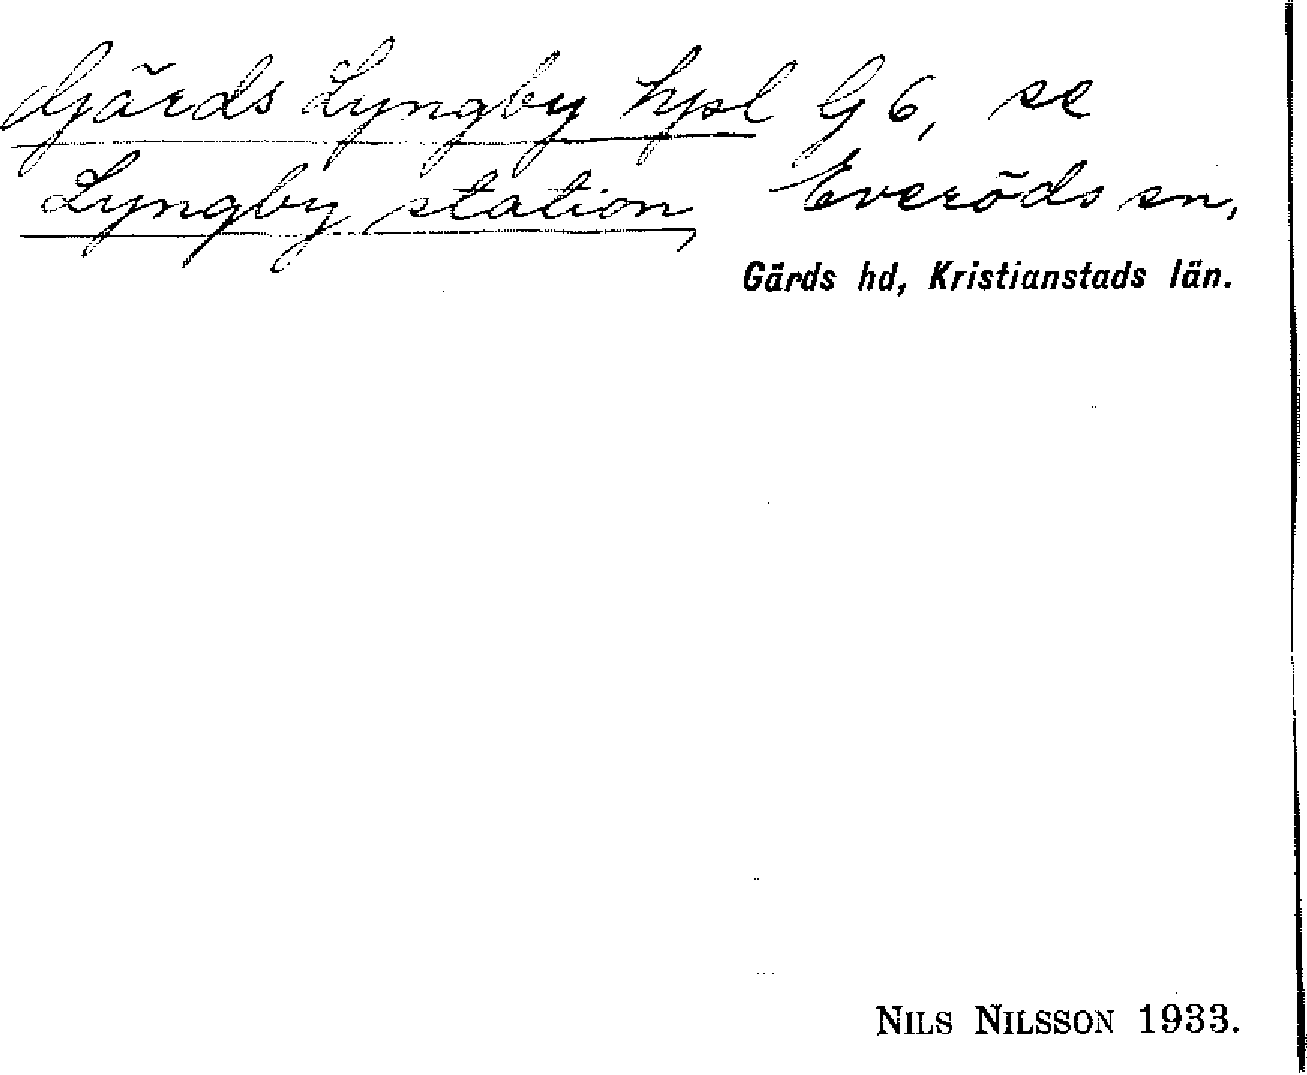 Gärds Lyngby hpl G 6, se
Lyngby station, Everöds sn,
Gärds hd, Kristianstads län.
NILS NILSSON 1933.